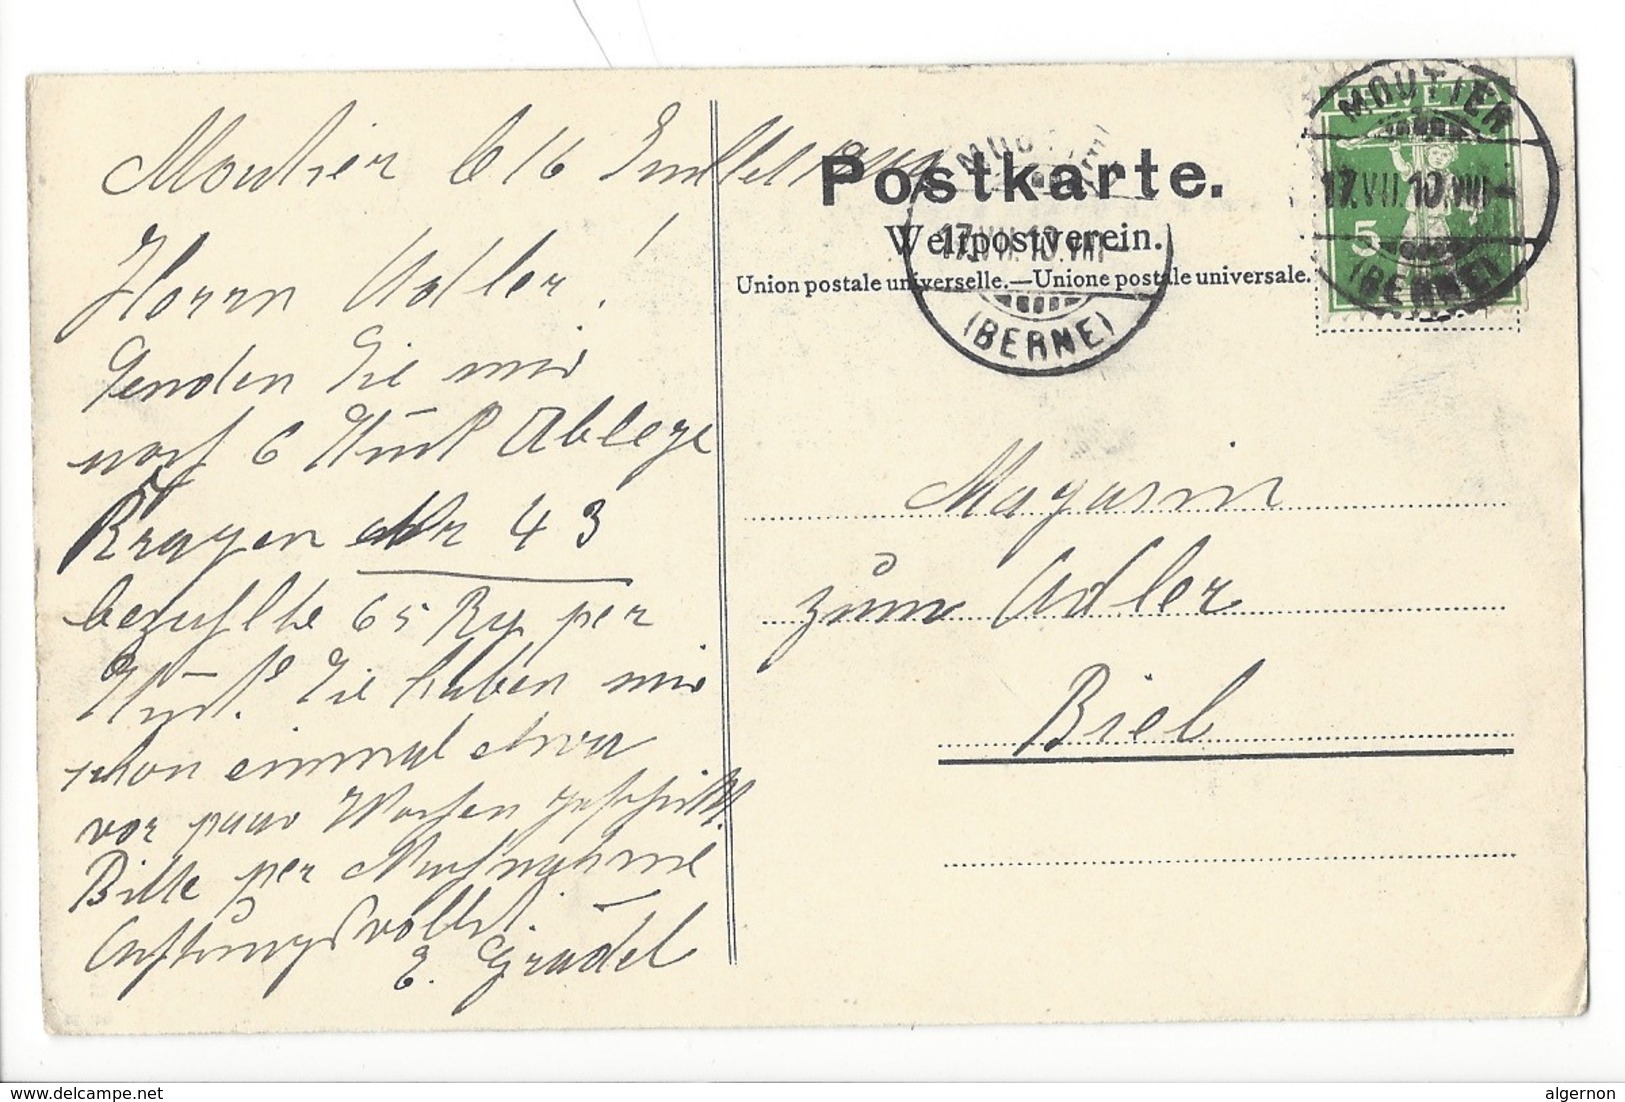 Moutier le 16 Juillet 1910
Herrn Adler!
Senden Sie mir
noch 6 Stück Ablege
Kragen Nr 43
bezahlte 65 Rp per
Stück. Sie haben mir
schon einmal etwa
vor paar Wochen geschickt.
Bitte per Nachnahme
Achtungsvollst.
E. Gradel
Postkarte.
Weltpostverein.
Union postale universelle.—Unione postale universale.
MOUTIER
17.VII.10.VIII
(BERNE)
HELVETIA
MOUTIER
17.VII.10.VIII
5
(BERNE)
Magasin
zum Adler
Biel
www.delcampe.net
algernon